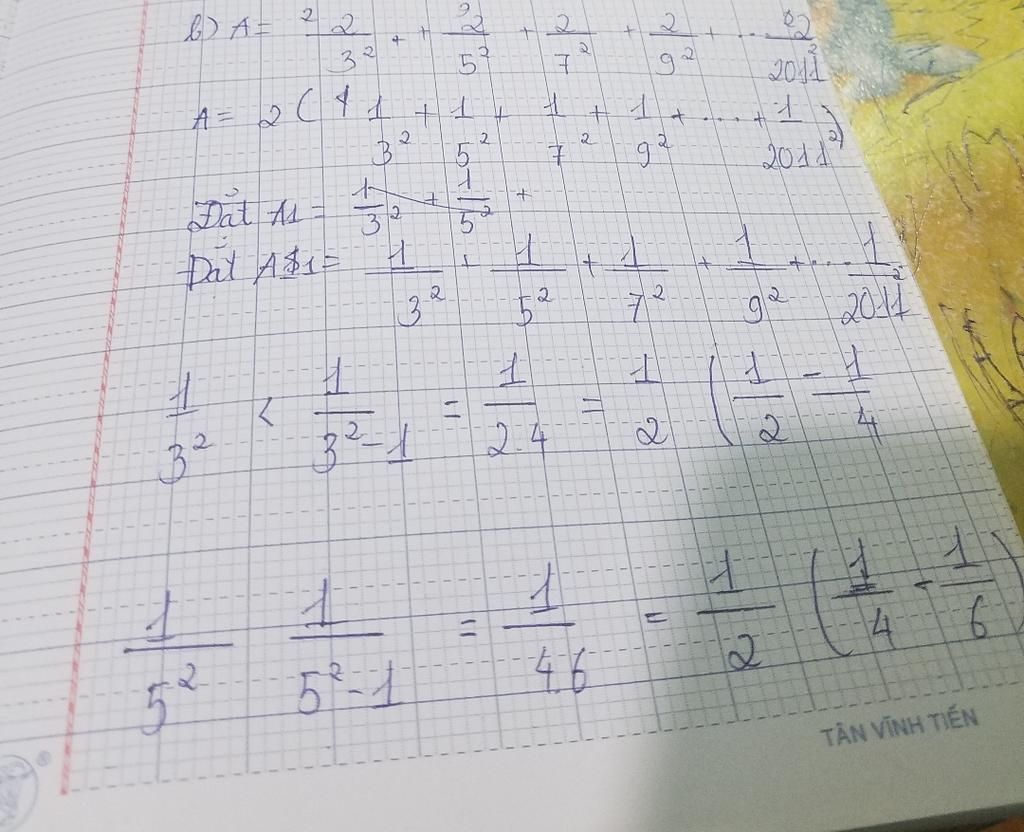 b) A = 2/3² + + 2/5² + 2/7² + 2/9² + ... 2/2011²
A = 2 ( 1/3² + 1/5² + 1/7² + 1/9² + .... + 1/2011² )
Đặt A1 = 1/3² + 1/5² +
Đặt A1 = 1/3² + 1/5² + 1/7² + 1/9² + ... 1/2011²
1/3² < 1/3²-1 = 1/2.4 = 1/2 ( 1/2 - 1/4
1/5² 1/5²-1 = 1/4.6 = 1/2 ( 1/4 - 1/6 )
TÂN VĨNH TIẾN